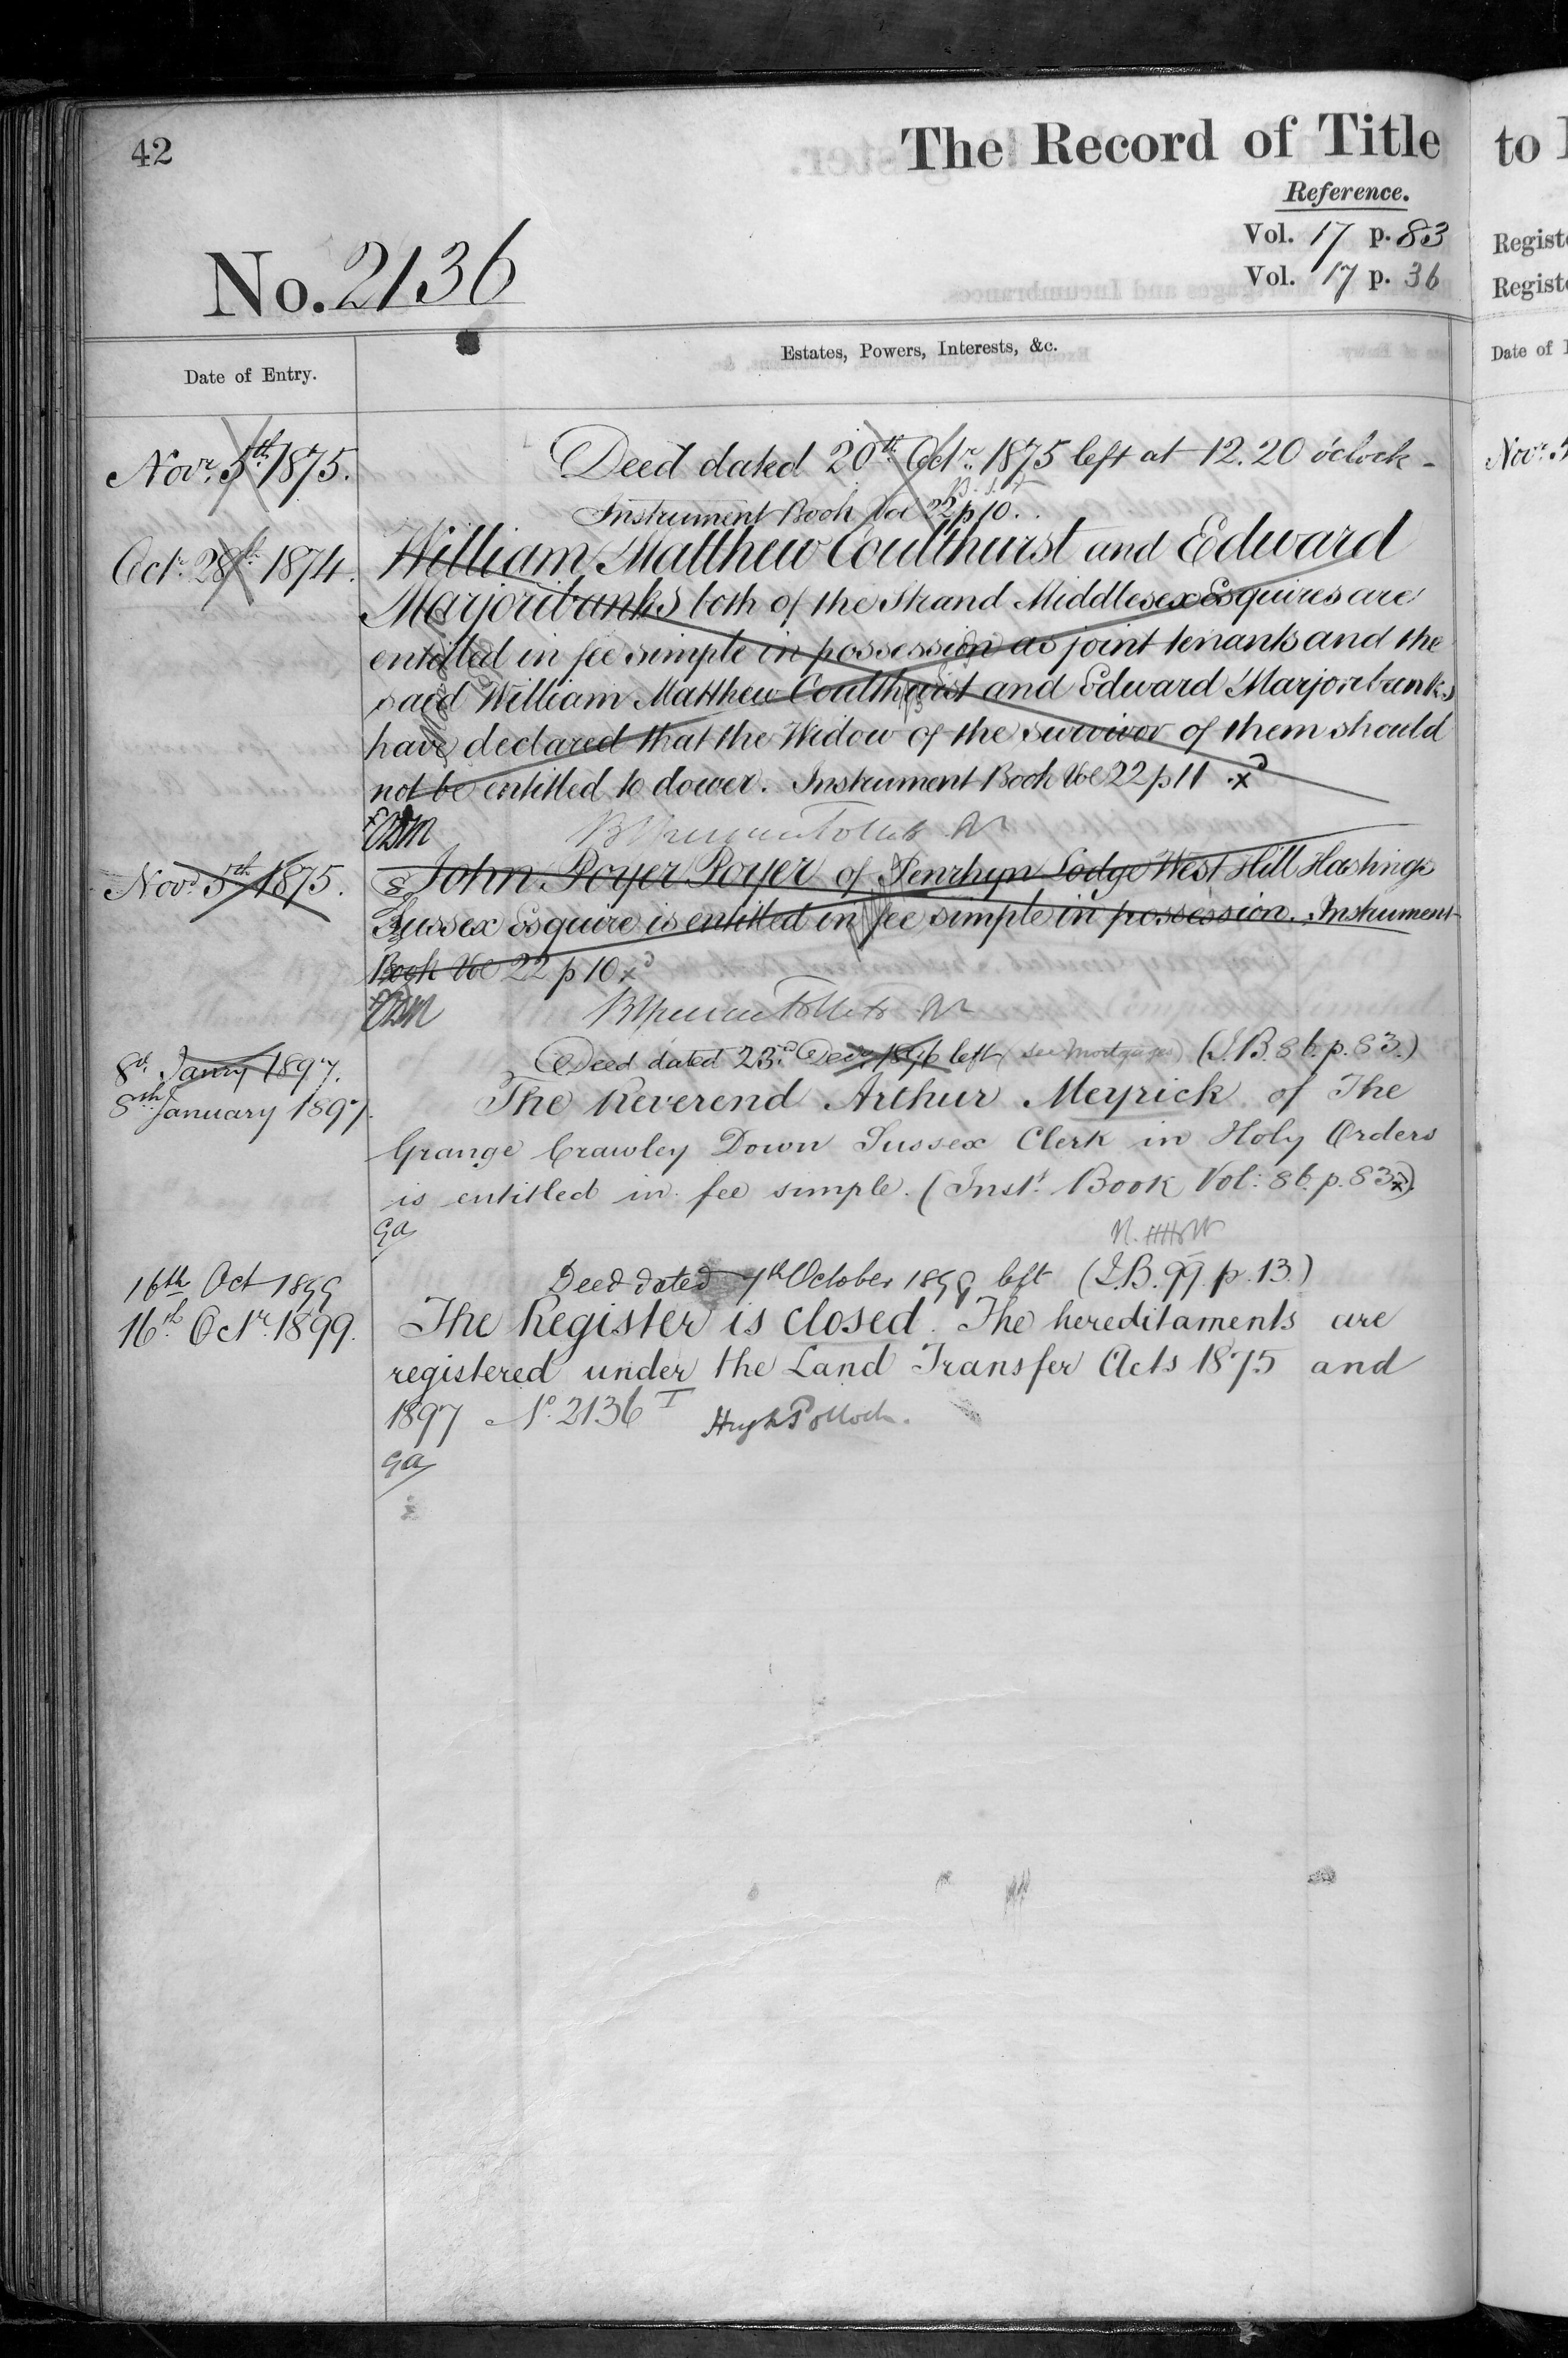 42
The Record of Title
Reference.
Vol. 17 p. 83
Vol. 17 p. 36
No. 2136
Date of Entry.
Estates, Powers, Interests, &c.
Novr. 5th 1875.
Deed dated 20th Octr. 1875 left at 12.20 o'clock -
Instrument Book Vol 22 p 10.
Octr. 28th 1874.
William Matthew Coulthurst and Edward
Marjoribanks both of the Strand Middlesex Esquires are
entitled in fee simple in possession as joint tenants and the
said William Matthew Coulthurst and Edward Marjoribanks
have declared that the Widow of the survivor of them should
not be entitled to dower. Instrument Book Vol 22 p 11 . xd
Novr. 5th 1875.
John Poyer Poyer of Penrhyn Lodge West Hill Hastings
Sussex Esquire is entitled in fee simple in possession. Instrument
Book Vol 22 p 10 xd
8th Janry 1897.
Deed dated 23rd Decr. 1896 left (see Mortgages) (I.B. 86. p. 83.)
8th January 1897.
The Reverend Arthur Meyrick of The
Grange Crawley Down Sussex Clerk in Holy Orders
is entitled in fee simple. (Inst. Book Vol: 86. p. 83 x)
ga
16th Oct 1899
Deed dated 7th October 1899 left (I.B. 99. p. 13.)
16th Octr. 1899.
The Register is closed. The hereditaments are
registered under the Land Transfer Acts 1875 and
1897 No. 2136 I Hugh Pollock.
ga
to
Regist
Regist
Date of
Novr. 5